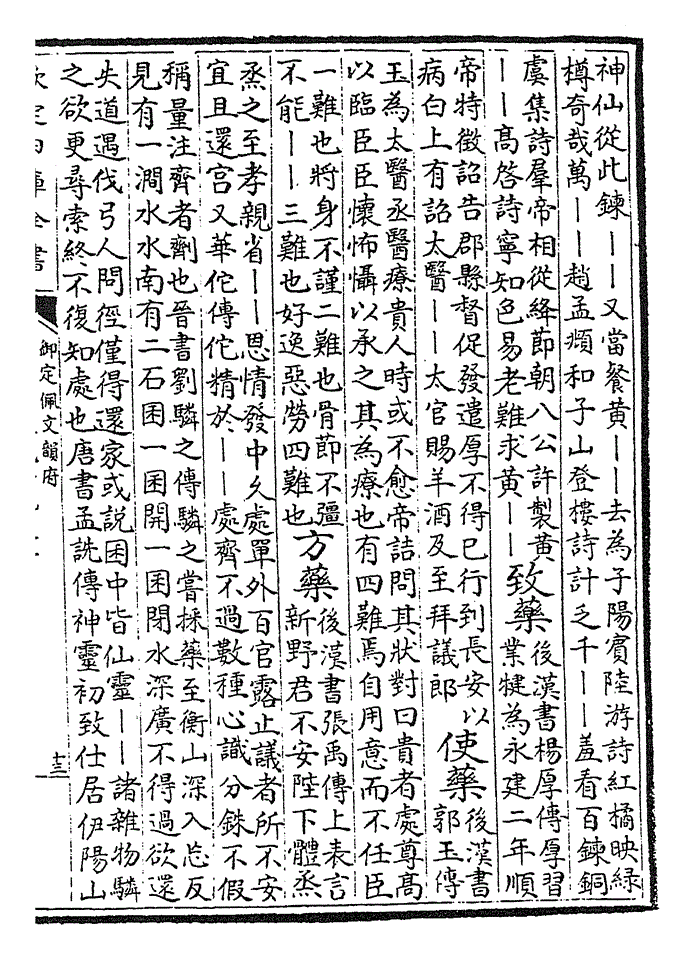 神仙從此鍊——又當餐黃——去為子陽賓陸游詩紅橘映緑
樽奇哉萬——趙孟頫和子山登樓詩計乏千——羞看百鍊銅
虞集詩羣帝相從絳節朝八公許製黃
——高啓詩寧知色易老難求黃——
致藥
後漢書楊厚傳厚習
業犍為永建二年順
帝特徵詔告郡縣督促發遣厚不得已行到長安以
病白上有詔太醫——太官賜羊酒及至拜議郎
使藥
後漢書
郭玉傳
玉為太醫丞醫療貴人時或不愈帝詰問其狀對曰貴者處尊高
以臨臣臣懷怖懾以承之其為療也有四難焉自用意而不任臣
一難也將身不謹二難也骨節不彊
不能——三難也好逸惡勞四難也
方藥
後漢書張禹傳上表言
新野君不安陛下體烝
烝之至孝親省——恩情發中久處單外百官露止議者所不安
宜且還宫又華佗傳佗精於——處齊不過數種心識分銖不假
稱量注齊者劑也晉書劉驎之傳驎之嘗採藥至衡山深入忘反
見有一澗水水南有二石囷一囷開一囷閉水深廣不得過欲還
失道遇伐弓人問徑僅得還家或説囷中皆仙靈——諸雜物驎
之欲更尋索終不復知處也唐書孟詵傳神靈初致仕居伊陽山
欽定四庫全書
御定佩文韻府
十三